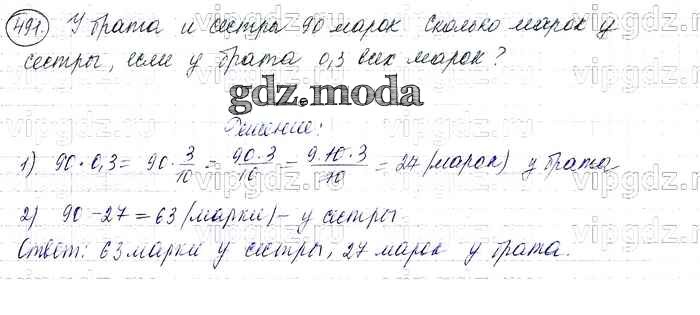 491. У брата и сестры 90 марок. Сколько марок у
сестры, если у брата 0,3 всех марок?
gdz.moda
Решение:
1) 90 · 0,3 = 90 · 3/10 = 90·3/10 = 9·10·3/10 = 27 (марок) у брата
2) 90 - 27 = 63 (марки) - у сестры
Ответ: 63 марки у сестры, 27 марок у брата.